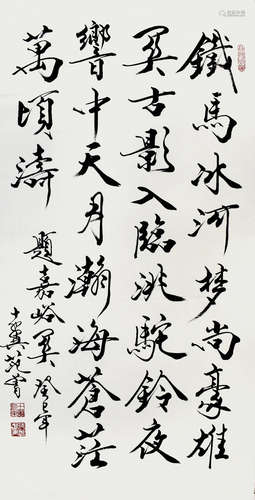 鐵馬冰河梦尚豪雄
关古影入臨洮駝鈴夜
響中天月瀚海蒼茫
萬頃濤
題嘉峪关 癸巳年
十翼范曾